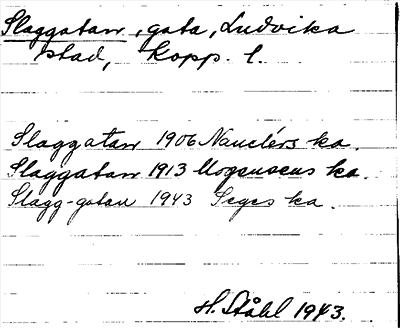 Slaggatan, gata, Ludvika
stad, Kopp. l.
Slaggatan 1906 Nauclérs ka.
Slaggatan 1913 Mogensens ka.
Slagg-gatan 1943 Seges ka.
H. Ståhl 1943.